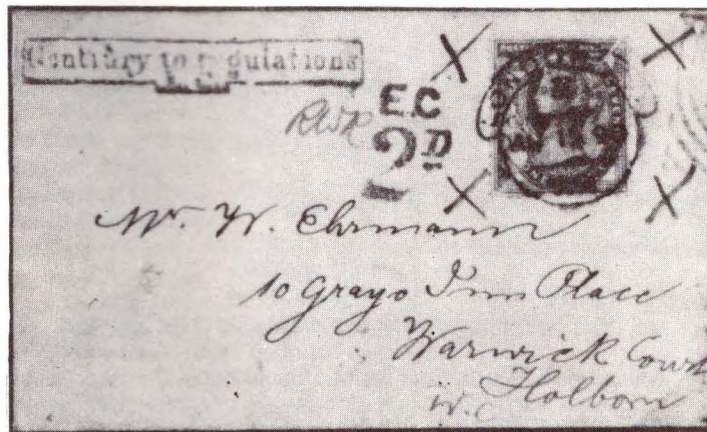 Contrary to regulations
E.C
2D
Mr. W. Ehrmann
10 Grays Inn Place
Warwick Court
Holborn
W.C